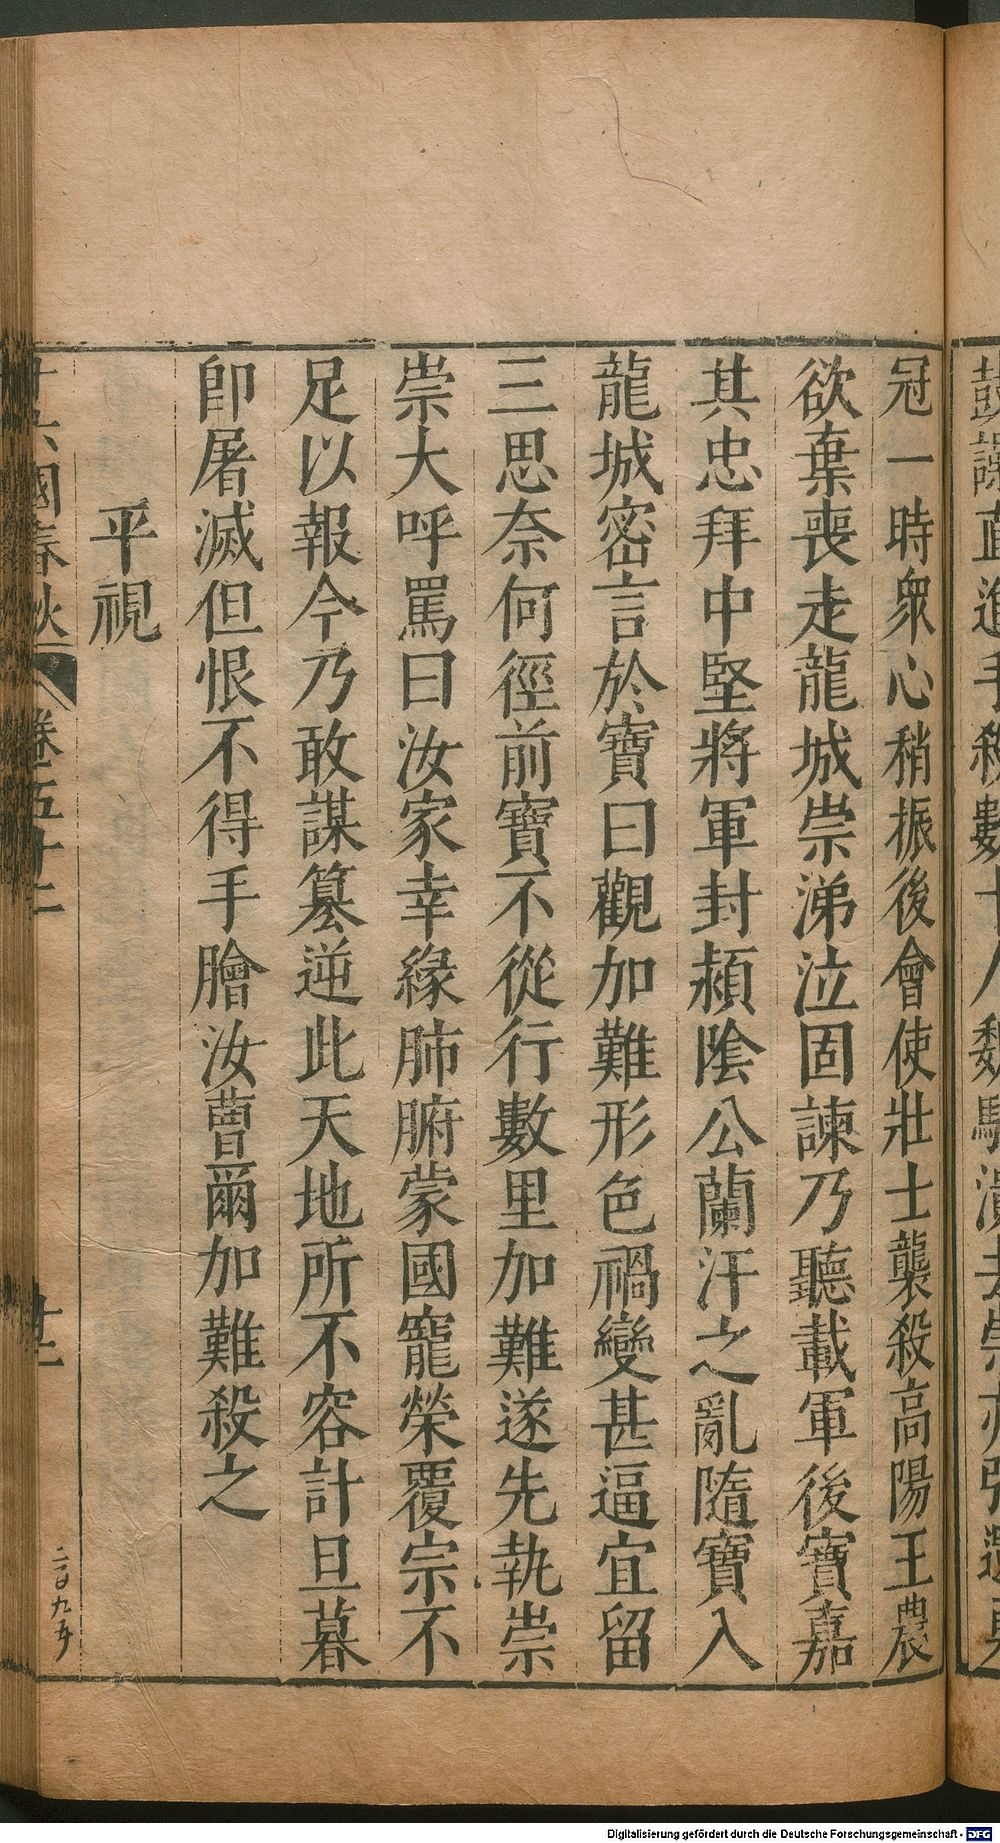 鼓譟直進手殺數十人魏騎潰去崇
冠一時衆心稍振後會使壯士襲殺高陽王農
欲棄喪走龍城崇涕泣固諫乃聽載軍後寶嘉
其忠拜中堅將軍封潁陰公蘭汗之亂隨寶入
龍城密言於寶曰觀加難形色禍變甚逼宜留
三思奈何徑前寶不從行數里加難遂先執崇
崇大呼罵曰汝家幸緣肺腑蒙國寵榮覆宗不
足以報今乃敢謀篡逆此天地所不容計旦暮
即屠滅但恨不得手膾汝曹爾加難殺之
平視
十六國春秋 卷五十二 廿二
二百九五
Digitalisierung gefördert durch die Deutsche Forschungsgemeinschaft - DFG